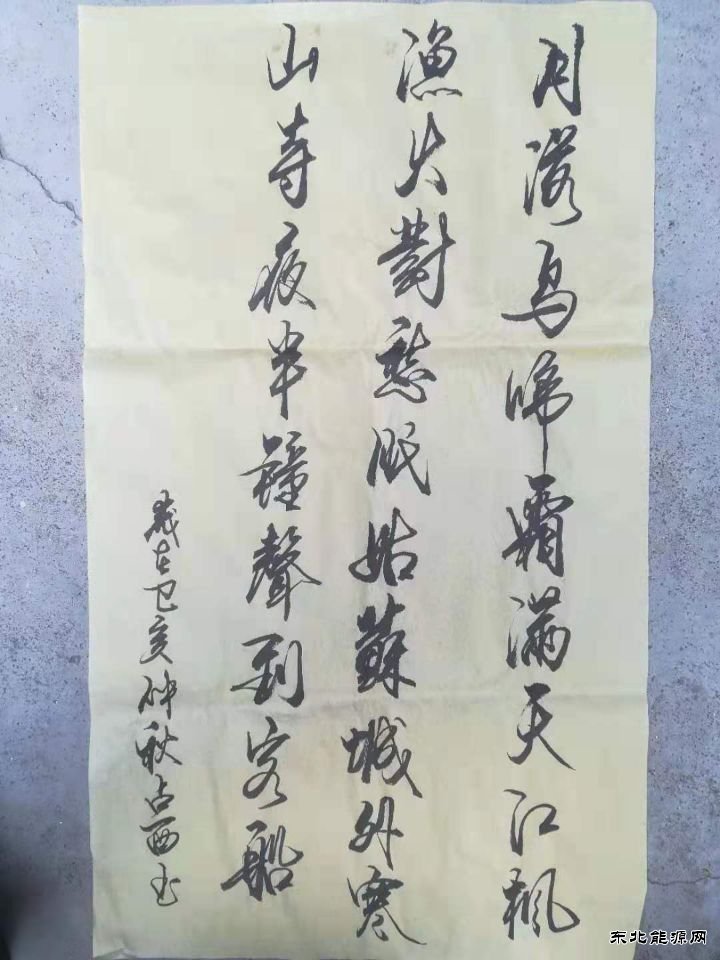 月落烏啼霜满天江楓
漁火對愁眠姑蘇城外寒
山寺夜半鐘聲到客船
歲在己亥仲秋占西书
东北能源网